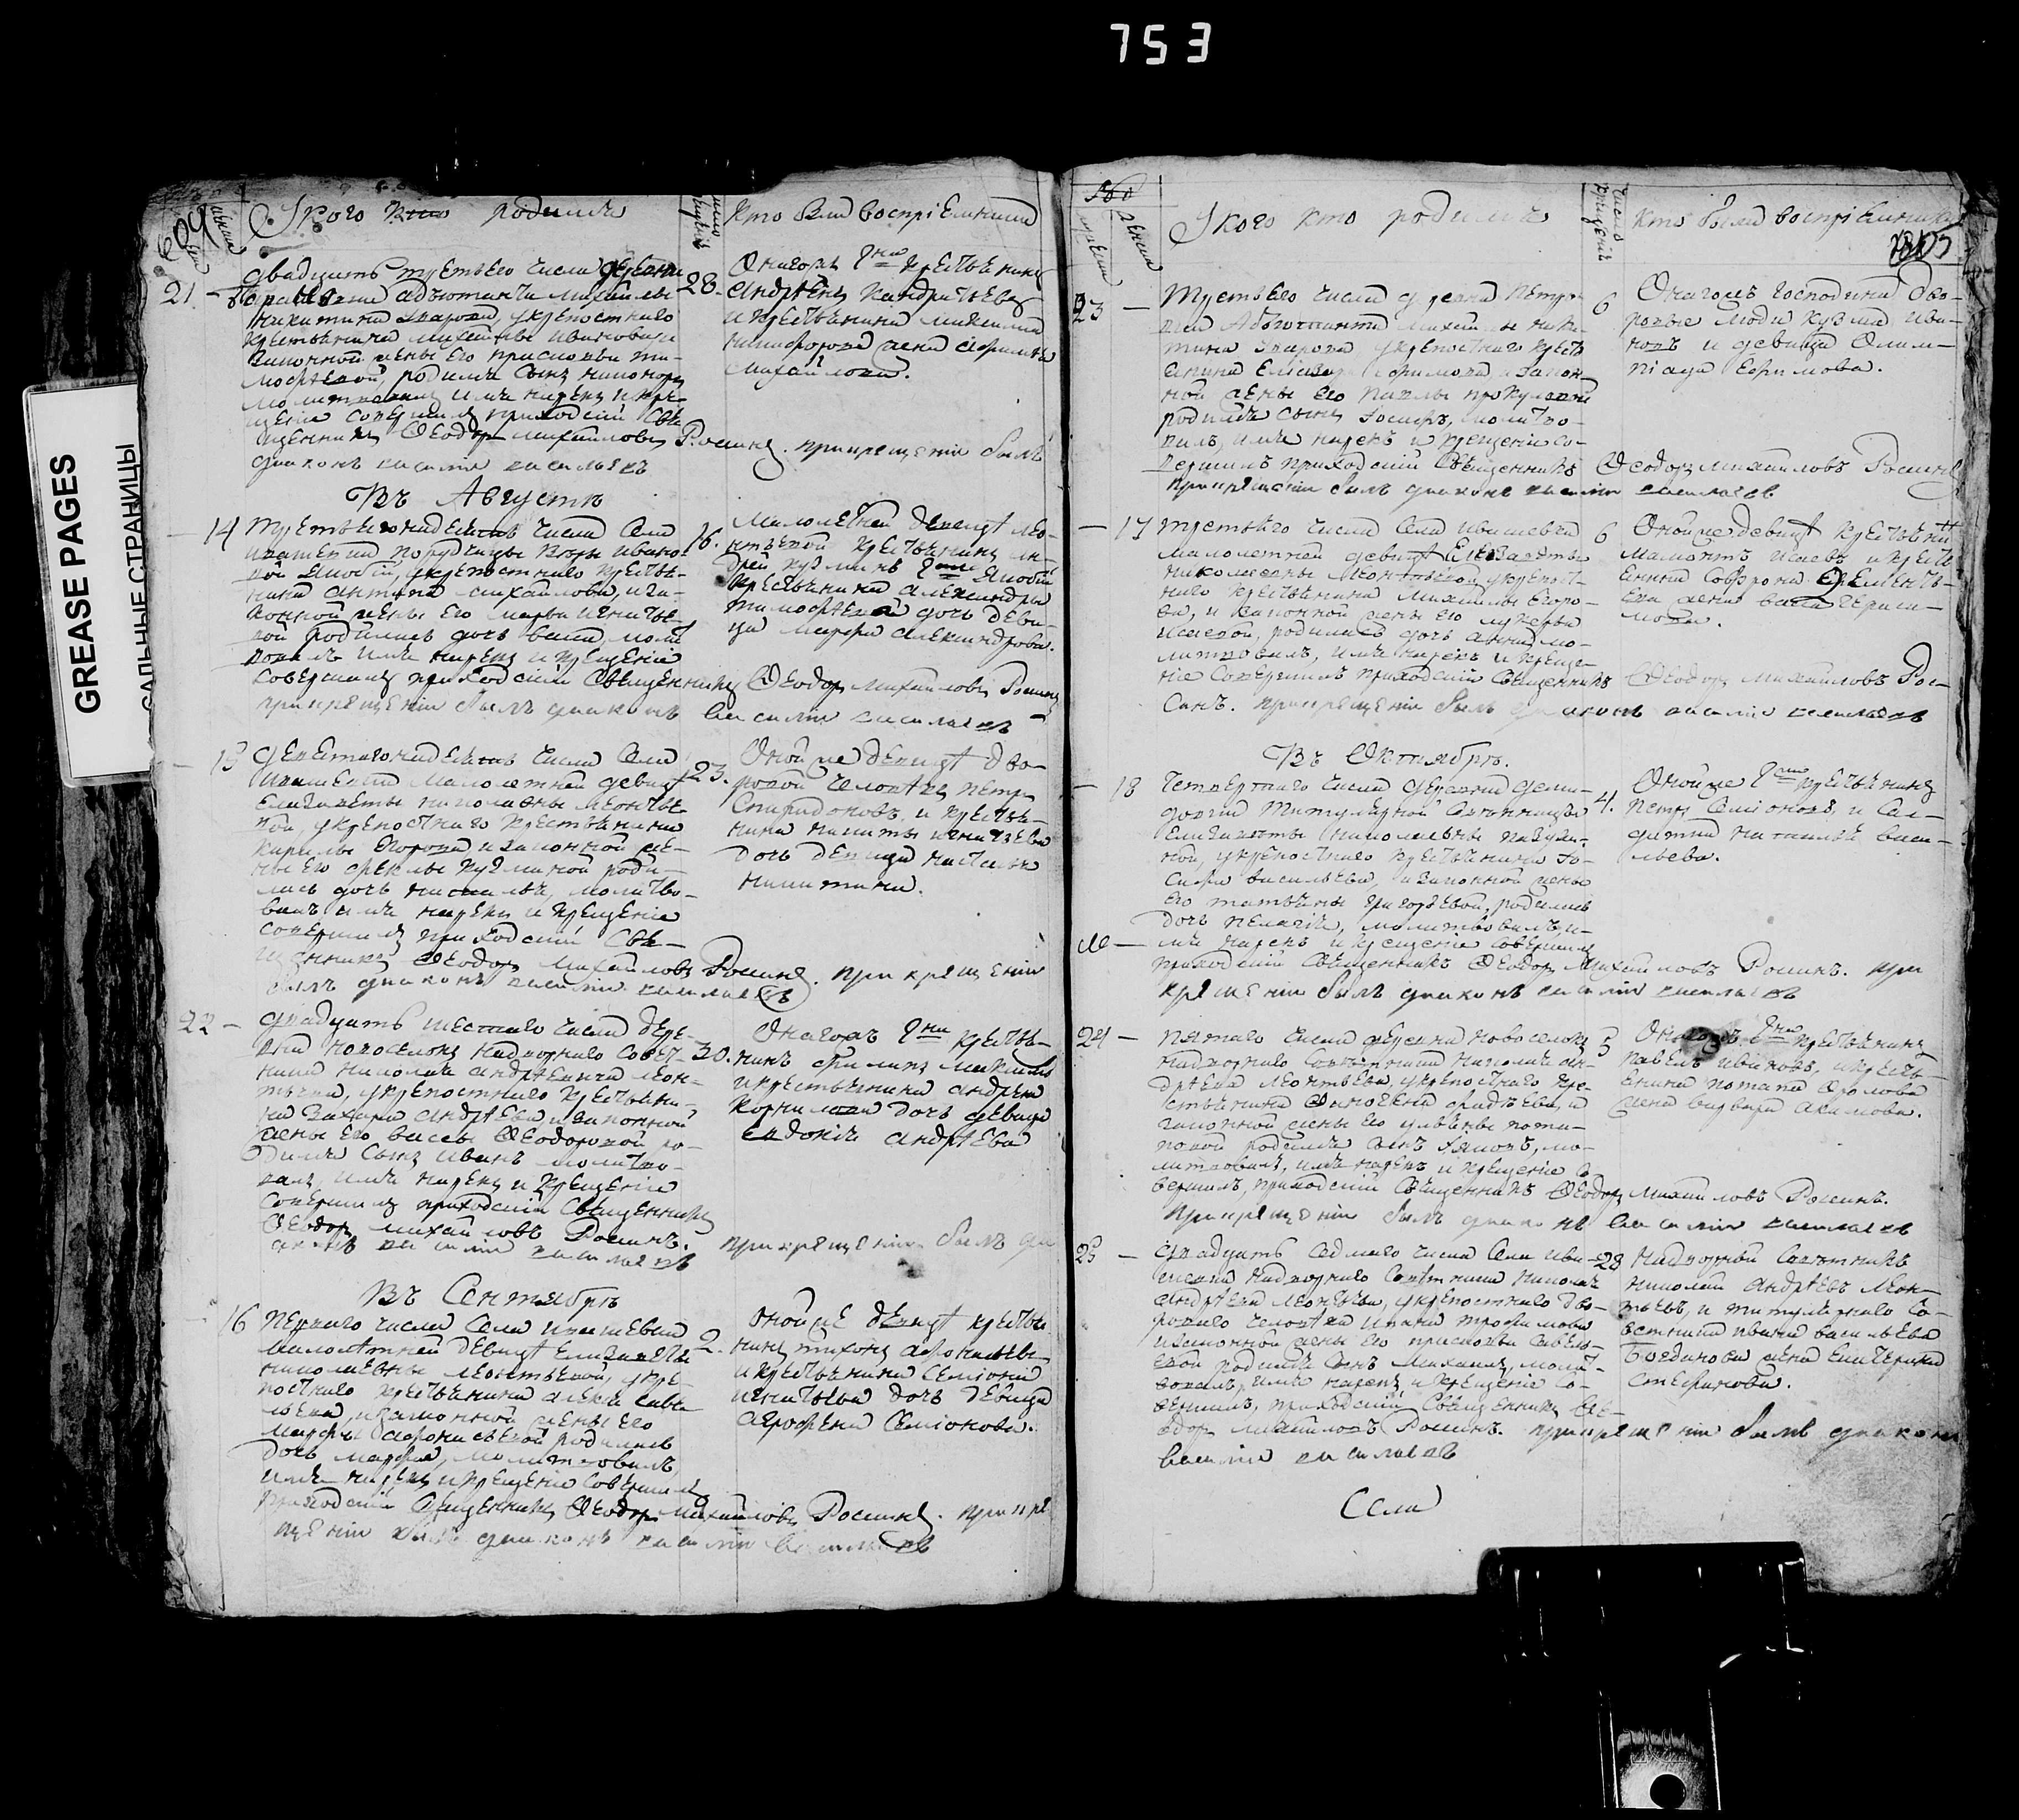 753
GREASE PAGES
САЛЬНЫЕ СТРАНИЦЫ
609
У кого кто родился
Кто были воспріемники
21 –
двадцать третьего числа деревни
адъютанта Михайлы
Никитина укрепостнаго
крестьянина Михайлы Иванова и
законной жены его Прасковьи Ти-
мофѣевой, родился сынъ Никоноръ
молитвовалъ имя нарекъ и кре-
щеніе совершилъ приходскій Свя-
щенникъ Ѳеодоръ Михайловъ Росинъ. при крещеніи былъ
диаконъ василіи васильевъ
28.
Онагожъ Гна крестьянинъ
Андрѣянъ Кандратьевъ
и крестьянина Максима
Никифорова жена
Михайлова.
Въ Августѣ
14
третьегонадесять числа села
Ивашевки порутчицы Вѣры Ивано-
вой укрепостнаго крестья-
нина антипа михайлова, и за-
конной жены его марьи игнатье-
вой родилась дочь васса молит
вовалъ имя нарекъ и крещеніе
совершилъ приходскій Священникъ Ѳеодоръ Михайловъ Росинъ
при крещеніи былъ диаконъ василіи васильевъ
16.
Малолѣтней девицѣ Лео-
нтьевой крестьянинъ ан-
дрей кузминъ Гжи
крестьянина александра
тимофѣева дочь деви-
ца марфа александрова.
15
девятагонадесять числа села
Ивашевки малолетней девицѣ
Елизаветы николаевны леонтье-
вой, укрепостнаго крестьянина
кирилы Егорова и законной же-
ны его феклы кузминой роди-
лась дочь наталья, молитво-
валъ имя нарекъ и крещеніе
совершилъ приходскій Свя-
щенникъ Ѳеодоръ Михайловъ Росинъ. при крещеніи
былъ диаконъ василіи васильевъ
23.
Оной же девицѣ дво-
ровой человѣкъ петръ
Спиридоновъ, и крестья-
нина никиты игнатьева
дочь девица наталья
никитина.
22 –
двадцать шестаго числа дере-
вни новоселокъ надворнаго совет-
ника николая андрѣевича леон-
тьева, укрепостнаго крестьяни-
на захара андрѣева и законной
жены его вассы Ѳеодоровой ро-
дился сынъ иванъ молитво-
валъ, имя нарекъ и крещеніе
совершилъ приходскій Священникъ
Ѳеодоръ Михайловъ Росинъ. при крещеніи былъ диа
аконъ василіи васильевъ
30.
Онагожъ Гна крестья-
нинъ филипъ
и крестьянина андрея
корнилова дочь девица
евдокія андрѣева
Въ Сентябрѣ
16
перваго числа села ивашевки
малолѣтней девицѣ Елизаветы
николаевны леонтьевой, укре-
постнаго крестьянина алексѣя савель
ева, и законной жены его
марфы афонасьевой родилась
дочь марфа, молитвовалъ,
имя нарекъ и крещеніе совершилъ
приходскій Священникъ Ѳеодоръ Михайловъ Росинъ. при кре
щеніи былъ диаконъ василіи васильевъ
2.
Оной же девицѣ крестья
нинъ тихонъ афонасьевъ
и крестьянина Семіона
игнатьева дочь девица
аграфена Семіонова.
У кого кто родился
Число крещенія
Кто были воспріемники
23 –
третьего числа деревни
Адъютанта Михайлы Ники-
тина укрепостнаго кресть
янина и закон-
ной жены его
родился сынъ молитво-
валъ, имя нарекъ и крещеніе со-
вершилъ приходскій Священникъ Ѳеодоръ Михайловъ Росинъ
при крещеніи былъ диаконъ василіи васильевъ
6
Онагожъ господина дво-
ровые люди кузма ива-
новъ и девица Олим-
піада Ефимова.
– 17
третьего числа села ивашевки
малолетней девицѣ Елизаветы
николаевны леонтьевой укрепост-
наго крестьянина Михайлы Егоро-
ва, и законной жены его лукерьи
исаевой, родилась дочь анна мо-
литвовалъ, имя нарекъ и креще-
ніе совершилъ приходскій Священникъ Ѳеодоръ Михайловъ Рос-
синъ. при крещеніи былъ диаконъ василіи васильевъ
6
Оной же девицѣ крестьяни
мамонтъ исаевъ и кресть
янина Софрона
жена васса гераси-
мова.
Въ Октябрѣ.
– 18
четвертаго числа деревни
титулярной совѣтницы
Елизаветы николаевны
укрепостнаго крестьянина
васильева, и законной жены
его татьяны григорьевой, родилась
дочь пелагія, молитвовалъ, и-
мя нарекъ и крещеніе совершилъ
приходскій Священникъ Ѳеодоръ Михайловъ Росинъ. при
крещеніи былъ диаконъ василіи васильевъ
4.
Оной же Гжи крестьянинъ
петръ Семіоновъ, и сол-
датка наталья васи-
льева.
24 –
пятаго числа деревни новоселокъ
надворнаго совѣтника николая ан-
дрѣева леонтьева, укрепостнаго кре-
стьянина и
законной жены его ульяны пота-
повой родился сынъ мо-
литвовалъ, имя нарекъ и крещеніе со
вершилъ, приходскій Священникъ Ѳеодоръ Михайловъ Росинъ.
при крещеніи былъ диаконъ василіи васильевъ
5
Онагожъ Гна крестьянинъ
павелъ ивановъ, и кресть-
янина потапа фролова
жена варвара акимова.
25 –
двадцать седмаго числа села ива-
шевки надворнаго совѣтника николая
андрѣева леонтьева, укрепостнаго дво-
роваго человѣка ивана трофимова
и законной жены его прасковьи савель-
евой родился сынъ михаилъ, молит-
вовалъ, имя нарекъ и крещеніе со-
вершилъ, приходскій Священникъ Ѳе-
одоръ Михайловъ Росинъ. при крещеніи былъ диаконъ
василіи васильевъ
28
Надворный Совѣтникъ
николай андрѣевъ леон-
тьевъ, и титулярнаго со-
вѣтника ивана васильева
жена Екатерина
Стефанова.
Села